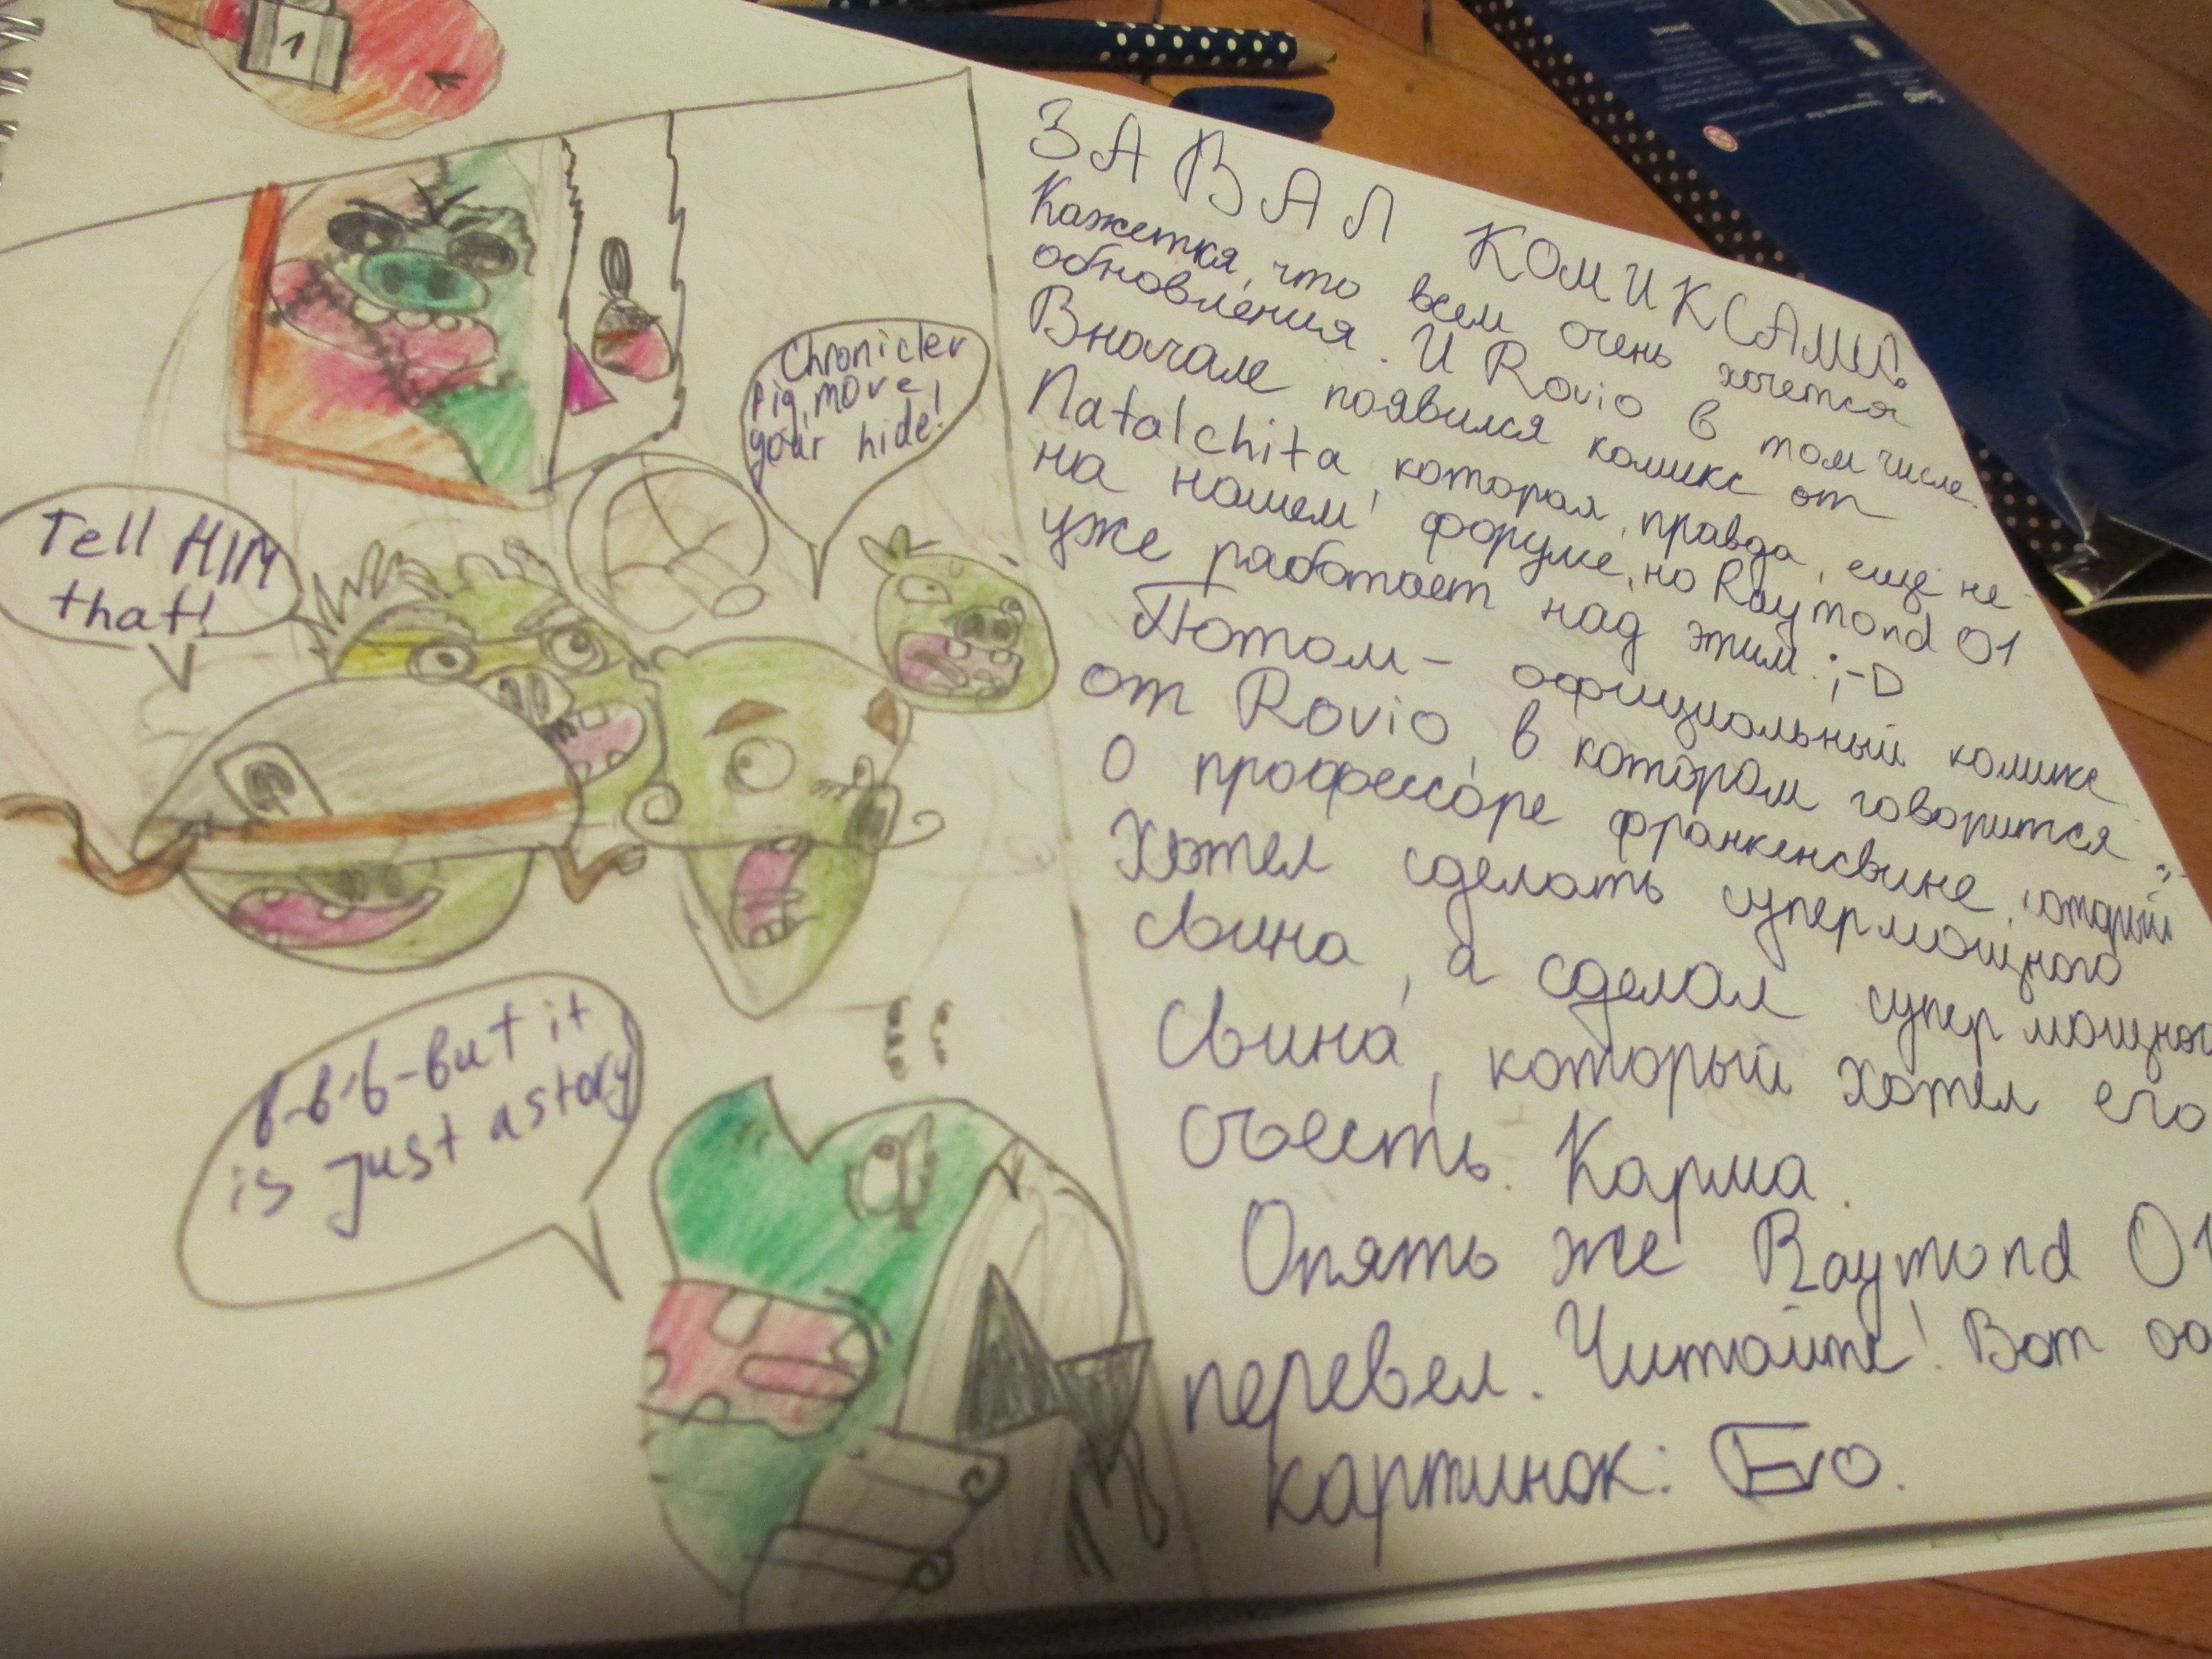 1
Chronicler
pig, move
your hide!
Tell HIM
that!
b-b-b-but it
is just a story
ЗАВАЛ КОМИКСАМИ!
Кажется, что всем очень хочется
обновления. И Rovio в том числе.
Вначале появился комикс от
Natalchita, которая, правда, ещё не
на нашем форуме, но Raymond 01
уже работает над этим. ;-D
Потом - официальный комикс
от Rovio, в котором говорится
о профессоре франкенсвине, который
Хотел сделать супермощного
свина, а сделал супер мощного
Свина, который хотел его
съесть. Карма.
Опять же Raymond 01
перевел. Читайте! Вот
картинок: